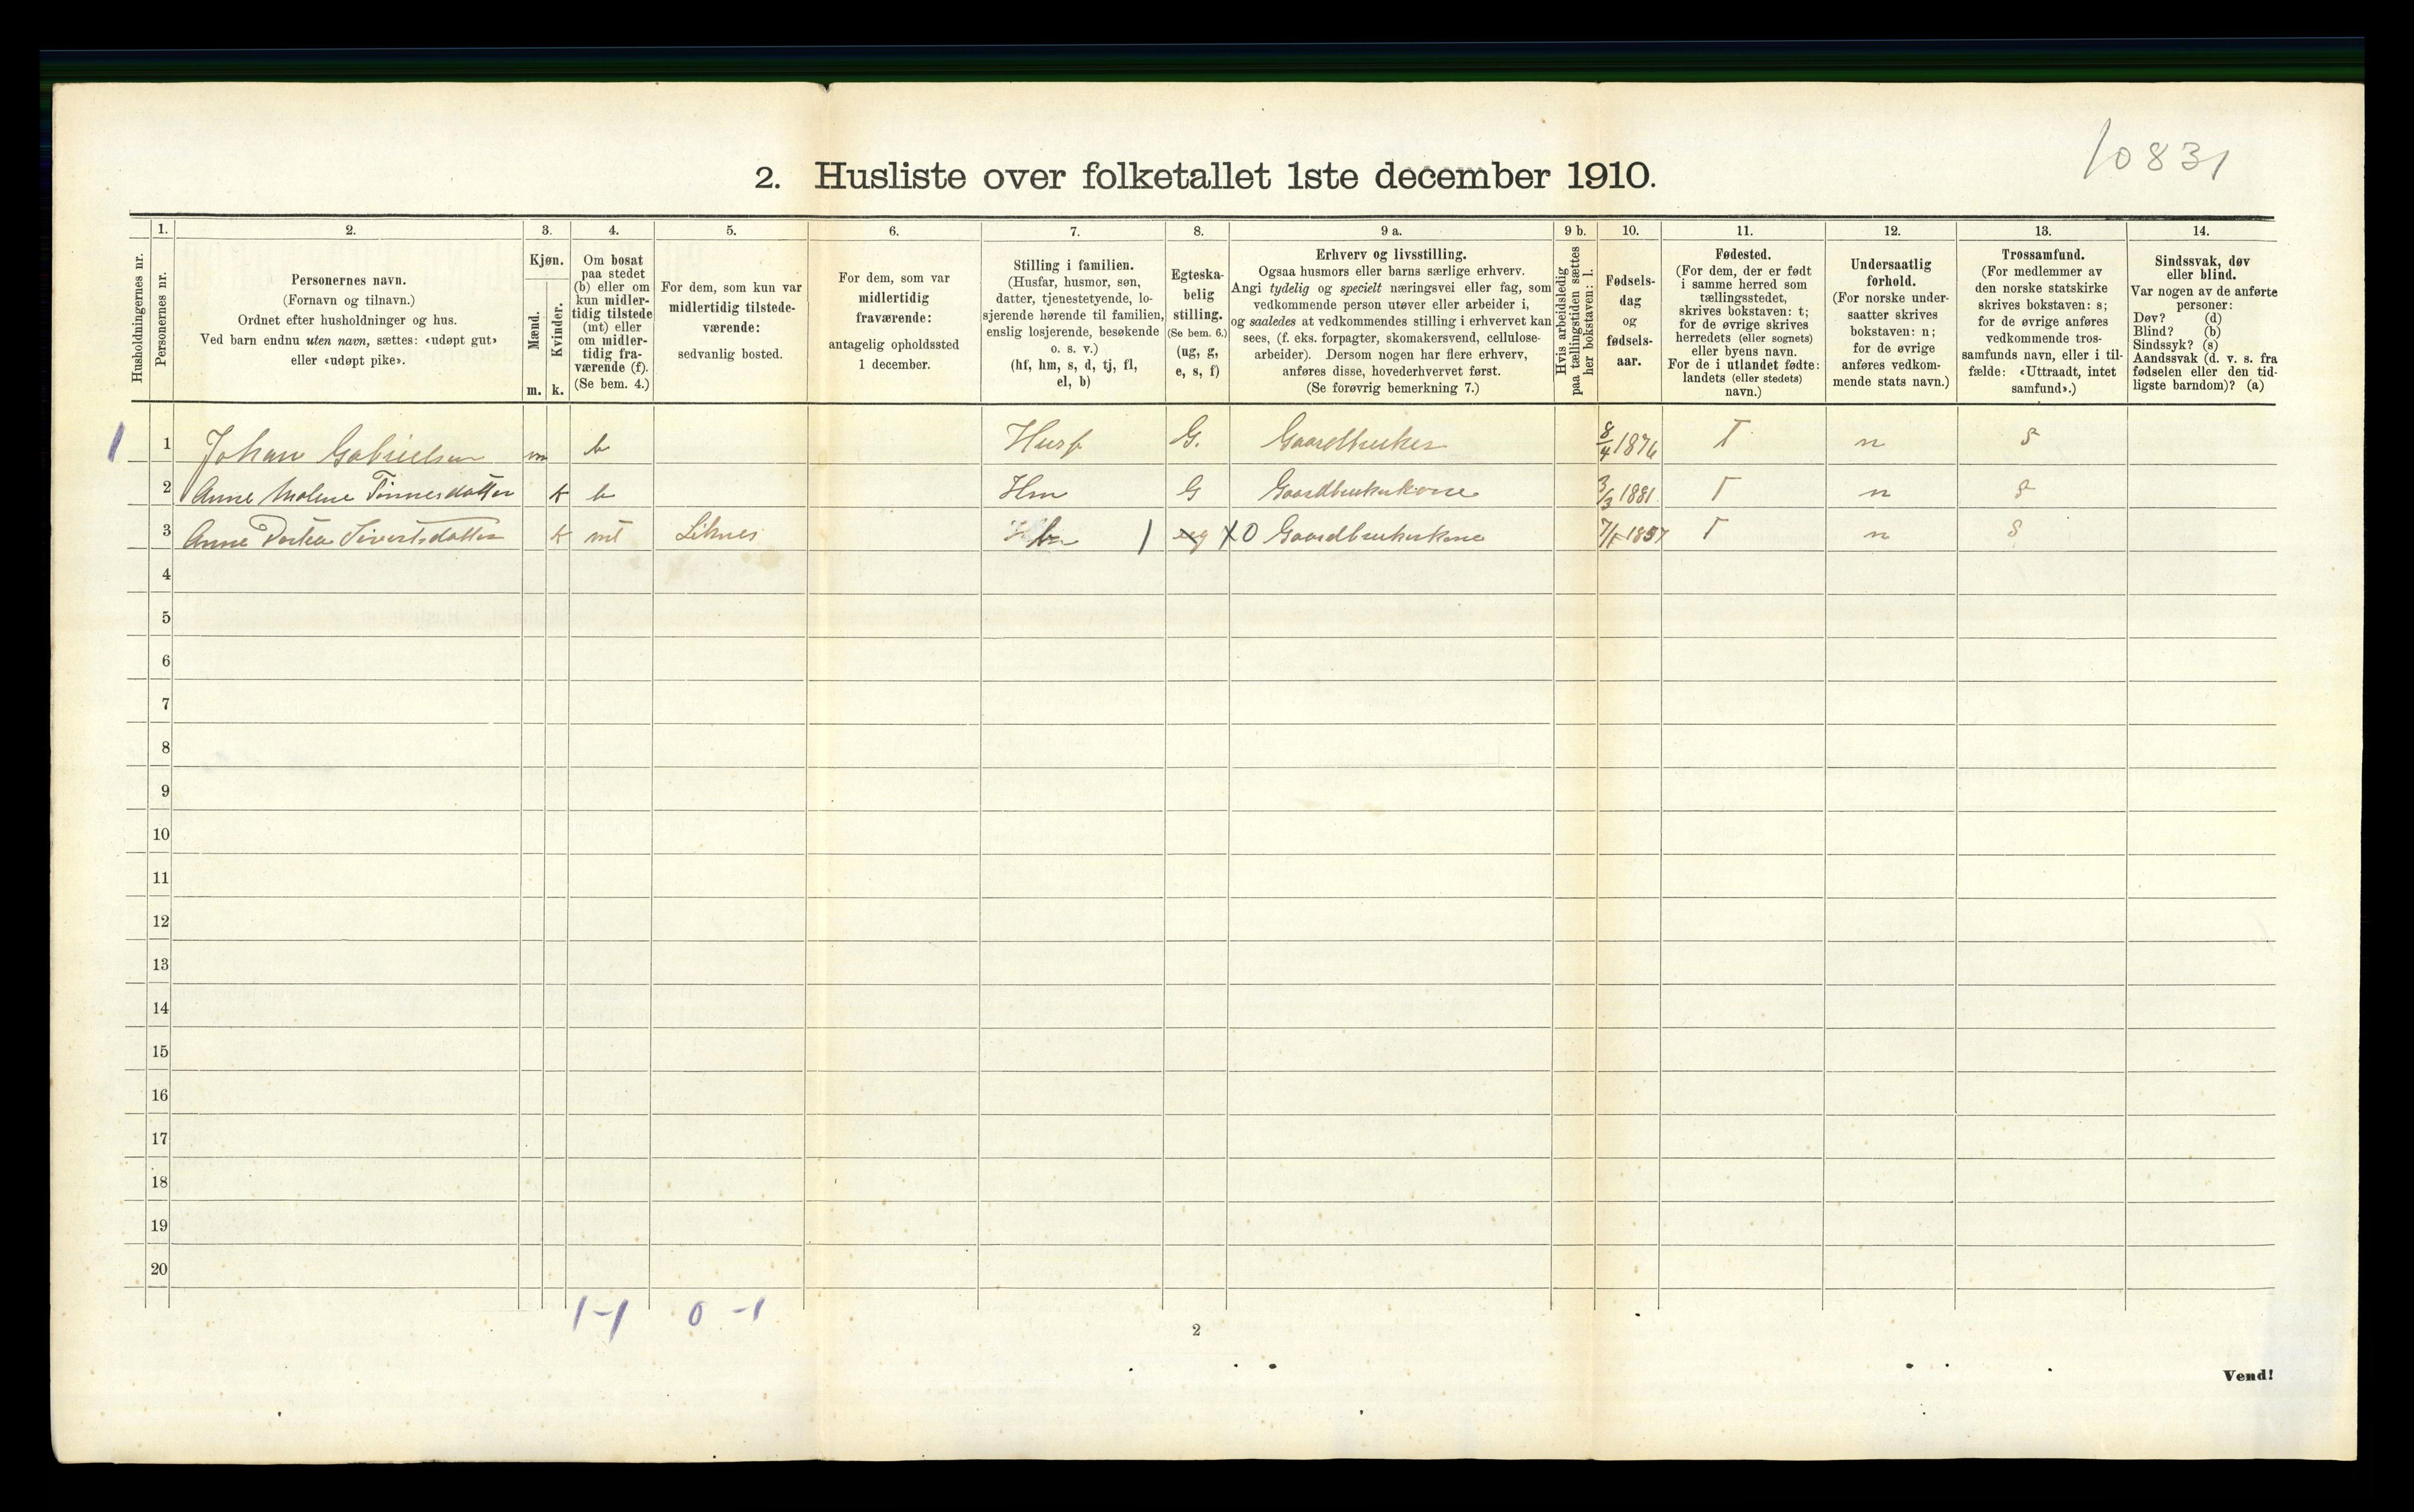 10831
2. Husliste over folketallet 1ste december 1910.
Husholdningernes nr.
1.
Personernes nr.
2.
Personernes navn.
(Fornavn og tilnavn.)
Ordnet efter husholdninger og hus.
Ved barn endnu uten navn, sættes: «udøpt gut»
eller «udøpt pike».
3.
Kjøn.
Mænd.
Kvinder.
m. k.
4.
Om bosat
paa stedet
(b) eller om
kun midler-
tidig tilstede
(mt) eller
om midler-
tidig fra-
værende (f).
(Se bem. 4.)
5.
For dem, som kun var
midlertidig tilstede-
værende:
sedvanlig bosted.
6.
For dem, som var
midlertidig
fraværende:
antagelig opholdssted
1 december.
7.
Stilling i familien.
(Husfar, husmor, søn,
datter, tjenestetyende, lo-
sjerende hørende til familien,
enslig losjerende, besøkende
o. s. v.)
(hf, hm, s, d, tj, fl,
el, b)
8.
Egteska-
belig
stilling.
(Se bem. 6.)
(ug, g,
e, s, f)
9 a.
Erhverv og livsstilling.
Ogsaa husmors eller barns særlige erhverv.
Angi tydelig og specielt næringsvei eller fag, som
vedkommende person utøver eller arbeider i,
og saaledes at vedkommendes stilling i erhvervet kan
sees, (f. eks. forpagter, skomakersvend, cellulose-
arbeider). Dersom nogen har flere erhverv,
anføres disse, hovederhvervet først.
(Se forøvrig bemerkning 7.)
9 b.
Hvis arbeidsledig
paa tællingstiden sættes
her bokstaven: l.
10.
Fødsels-
dag
og
fødsels-
aar.
11.
Fødested.
(For dem, der er født
i samme herred som
tællingsstedet,
skrives bokstaven: t;
for de øvrige skrives
herredets (eller sognets)
eller byens navn.
For de i utlandet fødte:
landets (eller stedets)
navn.)
12.
Undersaatlig
forhold.
(For norske under-
saatter skrives
bokstaven: n;
for de øvrige
anføres vedkom-
mende stats navn.)
13.
Trossamfund.
(For medlemmer av
den norske statskirke
skrives bokstaven: s;
for de øvrige anføres
vedkommende tros-
samfunds navn, eller i til-
fælde: «Uttraadt, intet
samfund».)
14.
Sindssvak, døv
eller blind.
Var nogen av de anførte
personer:
Døv? (d)
Blind? (b)
Sindssyk? (s)
Aandssvak (d. v. s. fra
fødselen eller den tid-
ligste barndom)? (a)
1 1 Johan Gabrielsen m b Husf G. Gaardbruker 8/4 1876 T n S
2 Anne Malene Tønnesdatter k b Hm G Gaardbrukerkone 3/3 1881 T n S
3 Anne Sivertsdatter k mt Liknes b 1 g X0 Gaardbrukerkone T n S
4
5
6
7
8
9
10
11
12
13
14
15
16
17
18
19
20
1-1 0-1
2
Vend!